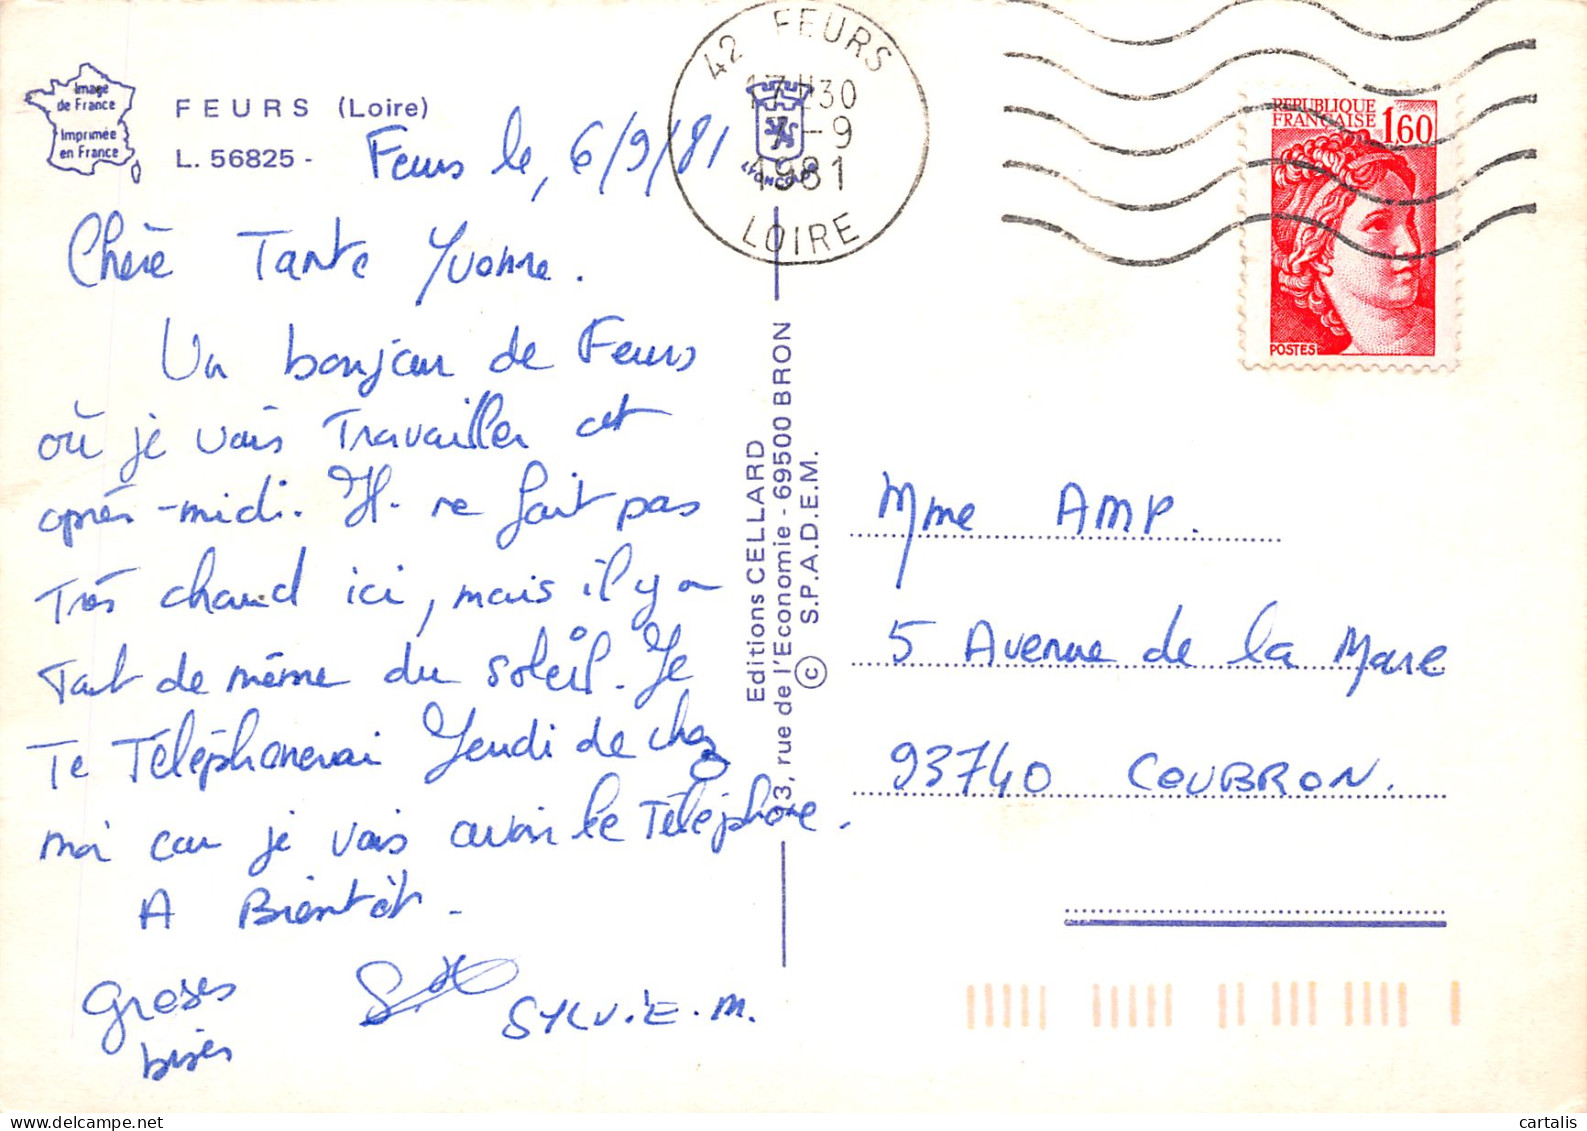 Image
de France
Imprimée
en France
FEURS (Loire)
L. 56825 -
42 FEURS
17H30
7-9
1981
LOIRE
REPUBLIQUE
FRANÇAISE 1,60
POSTES
Feurs le, 6/9/81
Chère Tante Yvonne.
Un bonjour de Feurs
où je vais Travailler cet
après-midi. Il ne fait pas
Très chaud ici, mais il y a
Tout de même du soleil. Je
Te Téléphonerai Jeudi de chez
moi car je vais avoir le Téléphone.
A Bientôt.
Groses
bises
SYLVIE.M.
Editions CELLARD
3, rue de l'Economie - 69500 BRON
© S.P.A.D.E.M.
Mme AMP.
5 Avenue de la Mare
93740 COUBRON.
cartalis